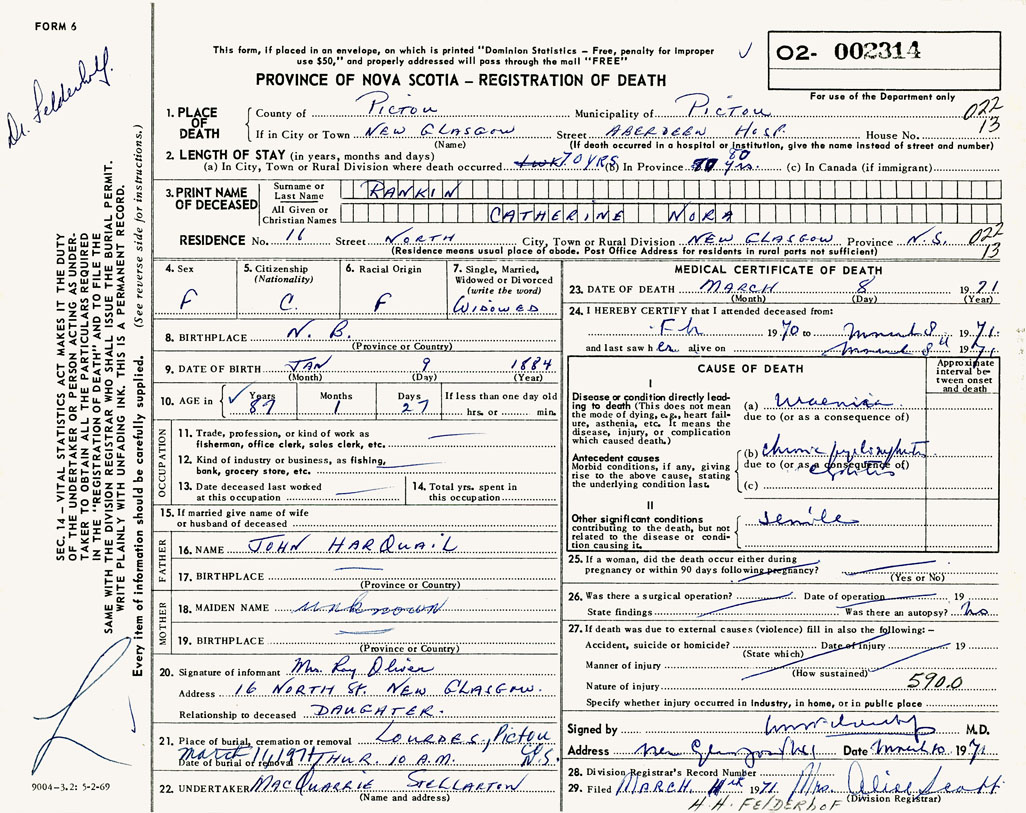 FORM 6
Dr. Felderhof.
This form, if placed in an envelope, on which is printed "Dominion Statistics – Free, penalty for improper
use $50," and properly addressed will pass through the mail "FREE"
02- 002314
PROVINCE OF NOVA SCOTIA – REGISTRATION OF DEATH
For use of the Department only
022
13
1. PLACE OF DEATH
County of PICTOU Municipality of PICTOU
If in City or Town NEW GLASGOW Street ABERDEEN HOSP. House No.
(Name) (If death occurred in a hospital or institution, give the name instead of street and number)
2. LENGTH OF STAY (in years, months and days)
(a) In City, Town or Rural Division where death occurred 70 YRS (b) In Province 80 yrs. (c) In Canada (if immigrant)
3. PRINT NAME OF DECEASED
Surname or Last Name RANKIN
All Given or Christian Names CATHERINE NORA
RESIDENCE No. 16 Street NORTH City, Town or Rural Division NEW GLASGOW Province N.S.
022
13
(Residence means usual place of abode. Post Office Address for residents in rural parts not sufficient)
4. Sex
F
5. Citizenship
(Nationality)
C.
6. Racial Origin
F
7. Single, Married,
Widowed or Divorced
(write the word)
WIDOWED
8. BIRTHPLACE N. B.
(Province or Country)
9. DATE OF BIRTH JAN 9 1884
(Month) (Day) (Year)
10. AGE in
Years
87
Months
1
Days
27
If less than one day old
hrs. or min.
OCCUPATION
11. Trade, profession, or kind of work as
fisherman, office clerk, sales clerk, etc.
12. Kind of industry or business, as fishing,
bank, grocery store, etc.
13. Date deceased last worked
at this occupation
14. Total yrs. spent in
this occupation
15. If married give name of wife
or husband of deceased
FATHER
16. NAME JOHN HARQUAIL
17. BIRTHPLACE
(Province or Country)
MOTHER
18. MAIDEN NAME unknown
19. BIRTHPLACE
(Province or Country)
20. Signature of informant Mrs. Roy Oliver
Address 16 NORTH St. NEW GLASGOW.
Relationship to deceased DAUGHTER.
21. Place of burial, cremation or removal LOURDES, PICTOU
N.S.
Date of burial or removal March 11, 1971 THUR. 10 A.M.
22. UNDERTAKER MACQUARRIE STELLARTON
(Name and address)
MEDICAL CERTIFICATE OF DEATH
23. DATE OF DEATH MARCH 8 1971
(Month) (Day) (Year)
24. I HEREBY CERTIFY that I attended deceased from:
Feb 1970 to March 8 1971.
and last saw her alive on March 8th 1971.
CAUSE OF DEATH
Approximate
interval be-
tween onset
and death
I
Disease or condition directly lead-
ing to death (This does not mean
the mode of dying, e.g., heart fail-
ure, asthenia, etc. It means the
disease, injury, or complication
which caused death.)
(a) uraemia
due to (or as a consequence of)
Antecedent causes
Morbid conditions, if any, giving
rise to the above cause, stating
the underlying condition last.
(b) chronic pyelonephritis
due to (or as a consequence of)
cystitis
(c)
II
Other significant conditions
contributing to the death, but not
related to the disease or condi-
tion causing it.
senile
25. If a woman, did the death occur either during
pregnancy or within 90 days following pregnancy?
(Yes or No)
26. Was there a surgical operation? Date of operation 19
State findings Was there an autopsy? No
27. If death was due to external causes (violence) fill in also the following:–
Accident, suicide or homicide? Date of Injury 19
(State which)
Manner of injury
(How sustained)
590.0
Nature of injury
Specify whether injury occurred in Industry, in home, or in public place
Signed by M.D.
Address New Glasgow Date March 10 1971
28. Division Registrar's Record Number
29. Filed MARCH 11th 1971 Mrs. Alice Scott
(Division Registrar)
H. H. FELDERHOF
SEC. 14 – VITAL STATISTICS ACT MAKES IT THE DUTY
OF THE UNDERTAKER OR PERSON ACTING AS UNDER-
TAKER TO OBTAIN ALL THE PARTICULARS REQUIRED
IN THE "REGISTRATION OF DEATH" AND TO FILE THE
SAME WITH THE DIVISION REGISTRAR WHO SHALL ISSUE THE BURIAL PERMIT.
WRITE PLAINLY WITH UNFADING INK. THIS IS A PERMANENT RECORD.
Every item of information should be carefully supplied. (See reverse side for instructions.)
9004-3.2: 5-2-69